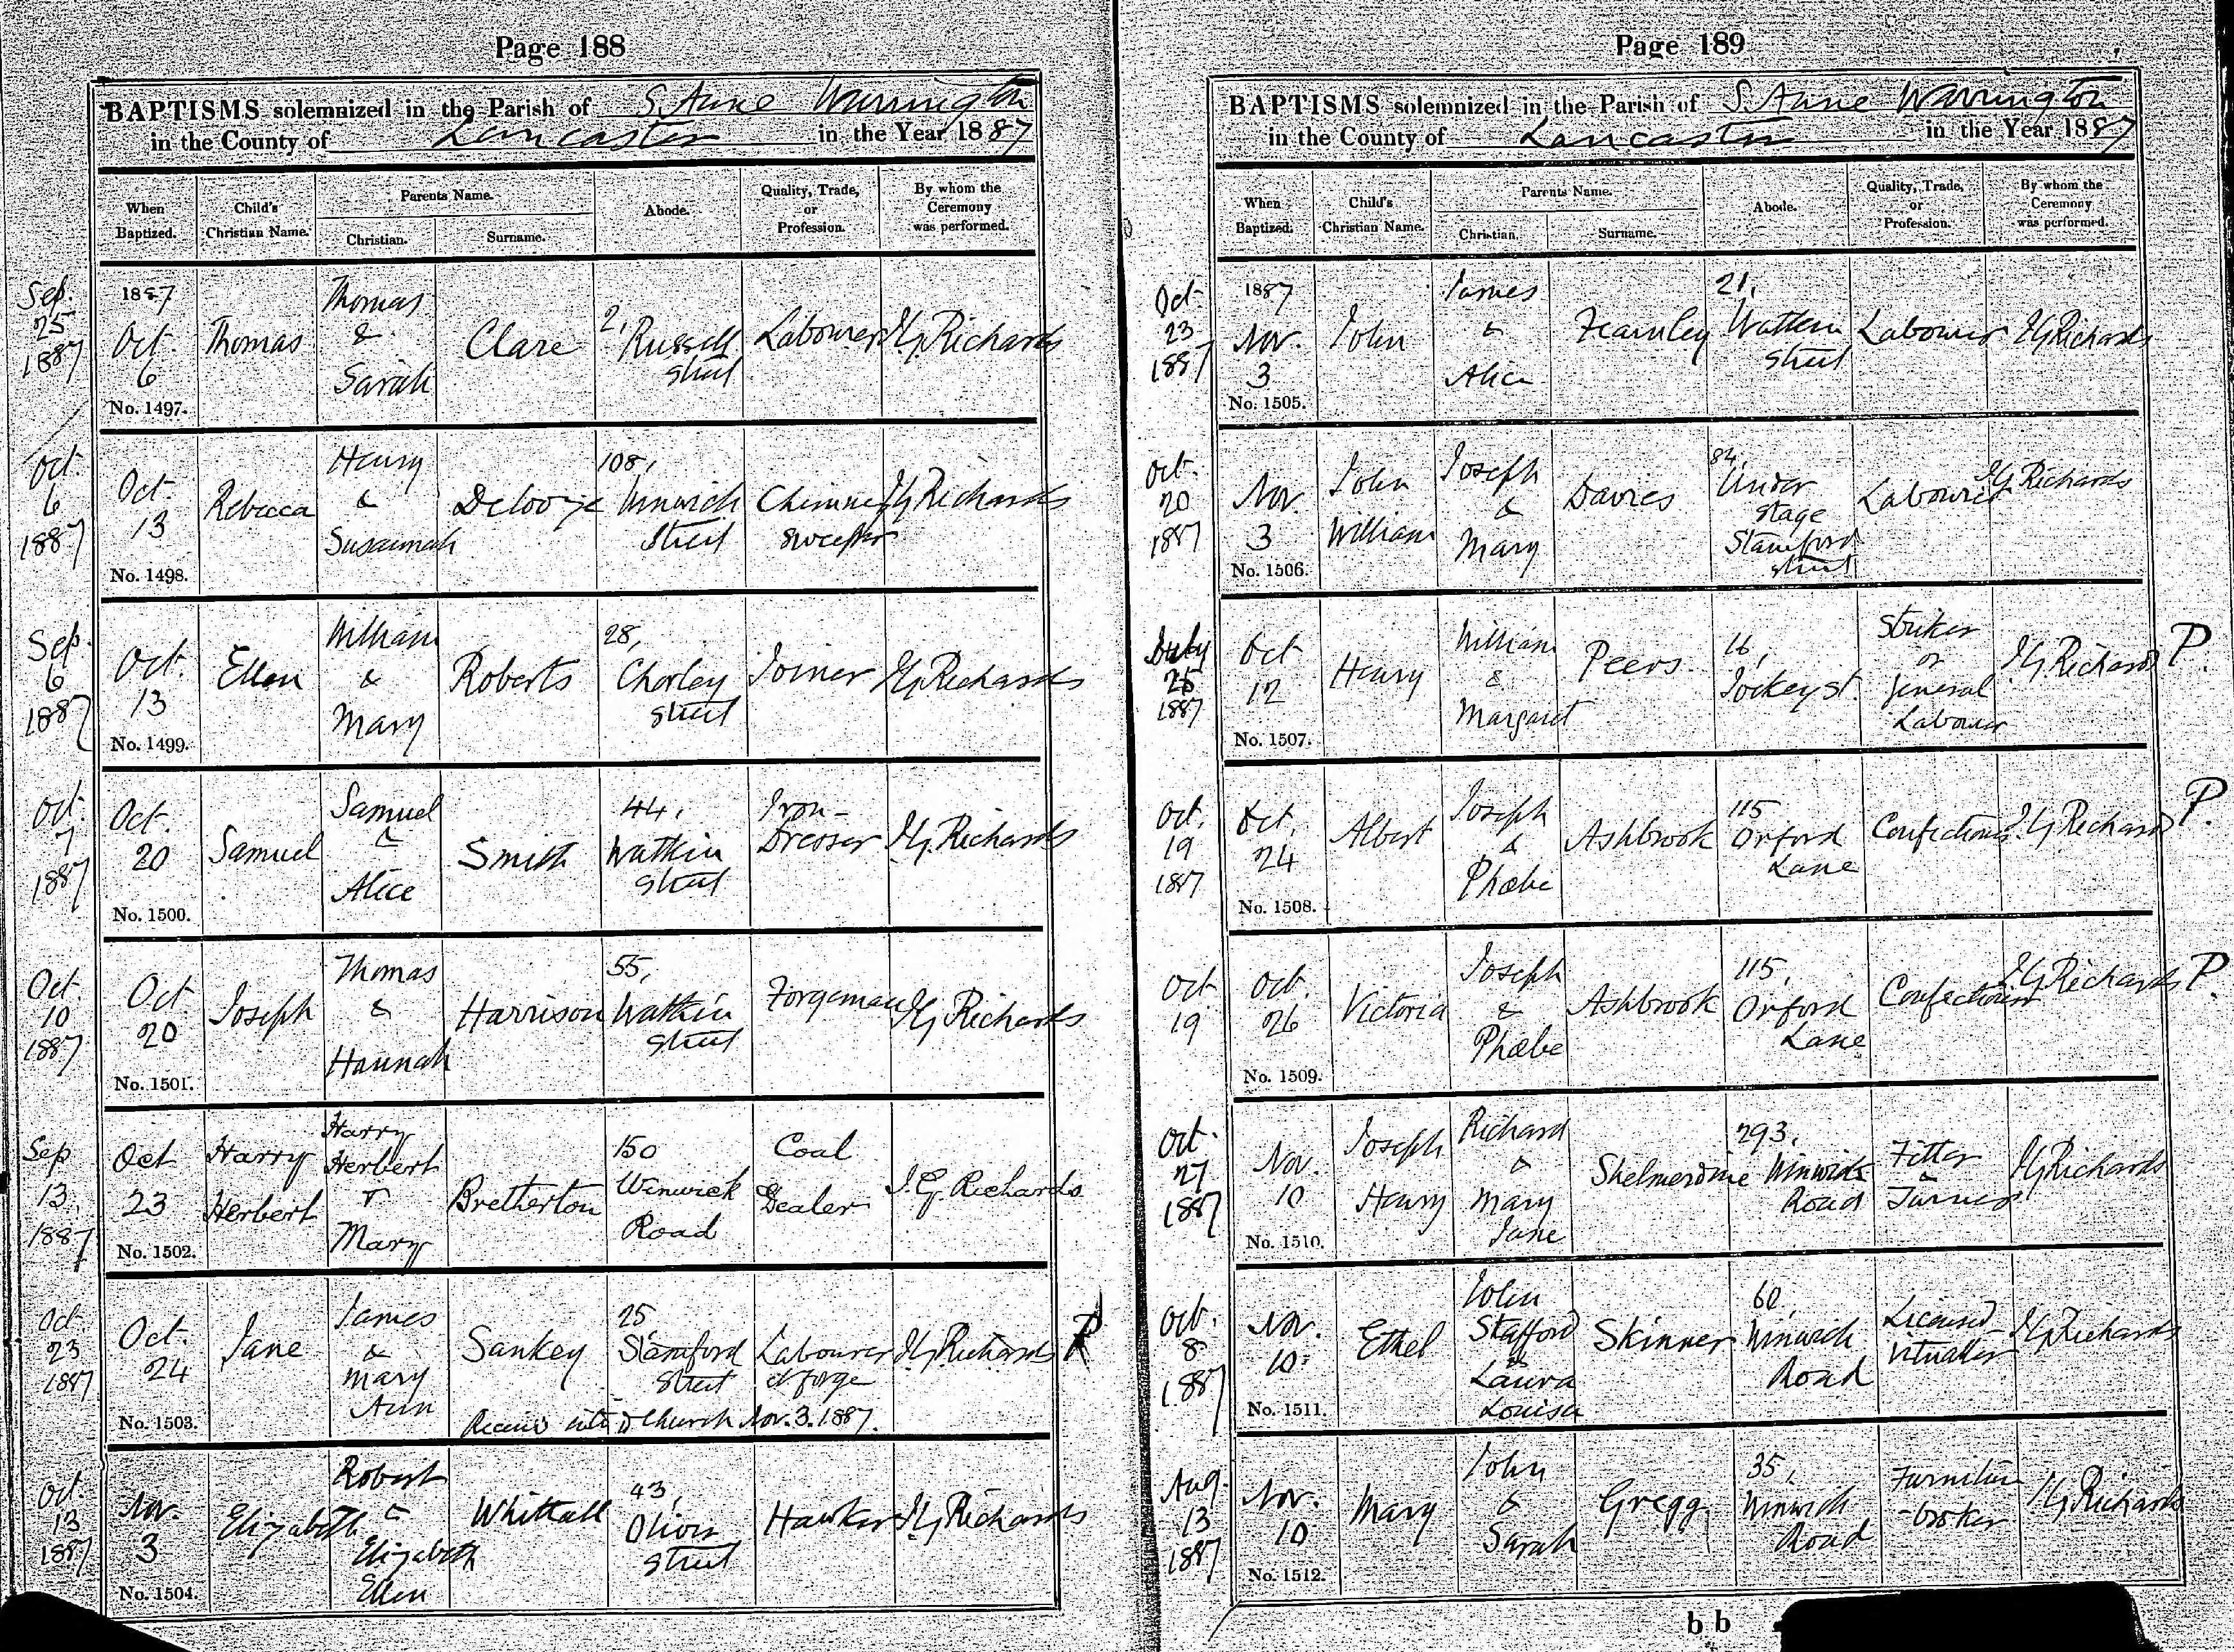 Page 188
BAPTISMS solemnized in the Parish of S. Anne Warrington
in the County of Lancaster in the Year 1887
When Baptized.
Child's Christian Name.
Parents Name.
Christian.
Surname.
Abode.
Quality, Trade, or Profession.
By whom the Ceremony was performed.
Sep. 25 1887
1887 Oct 6
Thomas
Thomas & Sarah
Clare
2, Russell Street
Labourer
J G Richards
No. 1497.
Oct. 6 1887
Oct. 13
Rebecca
Henry & Susannah
108, Winwick Street
Chimney Sweeper
J G Richards
No. 1498.
Sep. 6 1887
Oct. 13
Ellen
William & Mary
Roberts
28, Chorley Street
Joiner
J G Richards
No. 1499.
Oct. 7 1887
Oct. 20
Samuel
Samuel & Alice
Smith
44, Watkin Street
Iron-Dresser
J. G. Richards
No. 1500.
Oct. 10 1887
Oct 20
Joseph
Thomas & Hannah
Harrison
55, Watkin Street
Forgeman
J G Richards
No. 1501.
Sep 13, 1887
Oct 23
Harry Herbert
Harry Herbert & Mary
Bretherton
150 Winwick Road
Coal Dealer
J. G. Richards
No. 1502.
Oct 23 1887
Oct. 24
Jane
James & Mary Ann
Sankey
25, Stamford Street
Labourer at forge
J G Richards
P
Church Nov. 3. 1887.
No. 1503.
Oct 13 1887
Nov. 3
Elizabeth
Robert & Elizabeth Ellen
Whittall
43, Oliver Street
Hawker
J G Richards
No. 1504.
Page 189
BAPTISMS solemnized in the Parish of S. Anne Warrington
in the County of Lancaster in the Year 1887
When Baptized.
Child's Christian Name.
Parents Name.
Christian.
Surname.
Abode.
Quality, Trade, or Profession.
By whom the Ceremony was performed.
Oct. 23 1887
1887 Nov. 3
John
James & Alice
Fearnley
21, Watkin Street
Labourer
J G Richards
No. 1505.
Oct. 20 1887
Nov. 3
John William
Joseph & Mary
Davies
84, Under Stage Stamford Street
Labourer
J G Richards
No. 1506.
July 25 1887
Oct 12
Henry
William & Margaret
Peers
16, Jockey St.
Striker or General Labourer
J. G. Richards
P.
No. 1507.
Oct. 19 1887
Oct. 24
Albert
Joseph & Phœbe
Ashbrook
115 Orford Lane
Confectioner
J. G. Richards
P.
No. 1508.
Oct 19
Oct. 26
Victoria
Joseph & Phœbe
Ashbrook
115, Orford Lane
Confectioner
J G Richards
P.
No. 1509.
Oct. 27 1887
Nov. 10
Joseph Henry
Richard & Mary Jane
Shelmerdine
293, Winwick Road
Fitter Turner
J G Richards
No. 1510.
Oct. 8 1887
Nov. 10
Ethel
John Stafford & Laura Louisa
Skinner
60, Winwick Road
Licensed Vitualler
J G Richards
No. 1511.
Aug. 13 1887
Nov. 10
Mary
John & Sarah
Gregg
35, Winwick Road
Furniture-broker
J G Richards
No. 1512.
b b